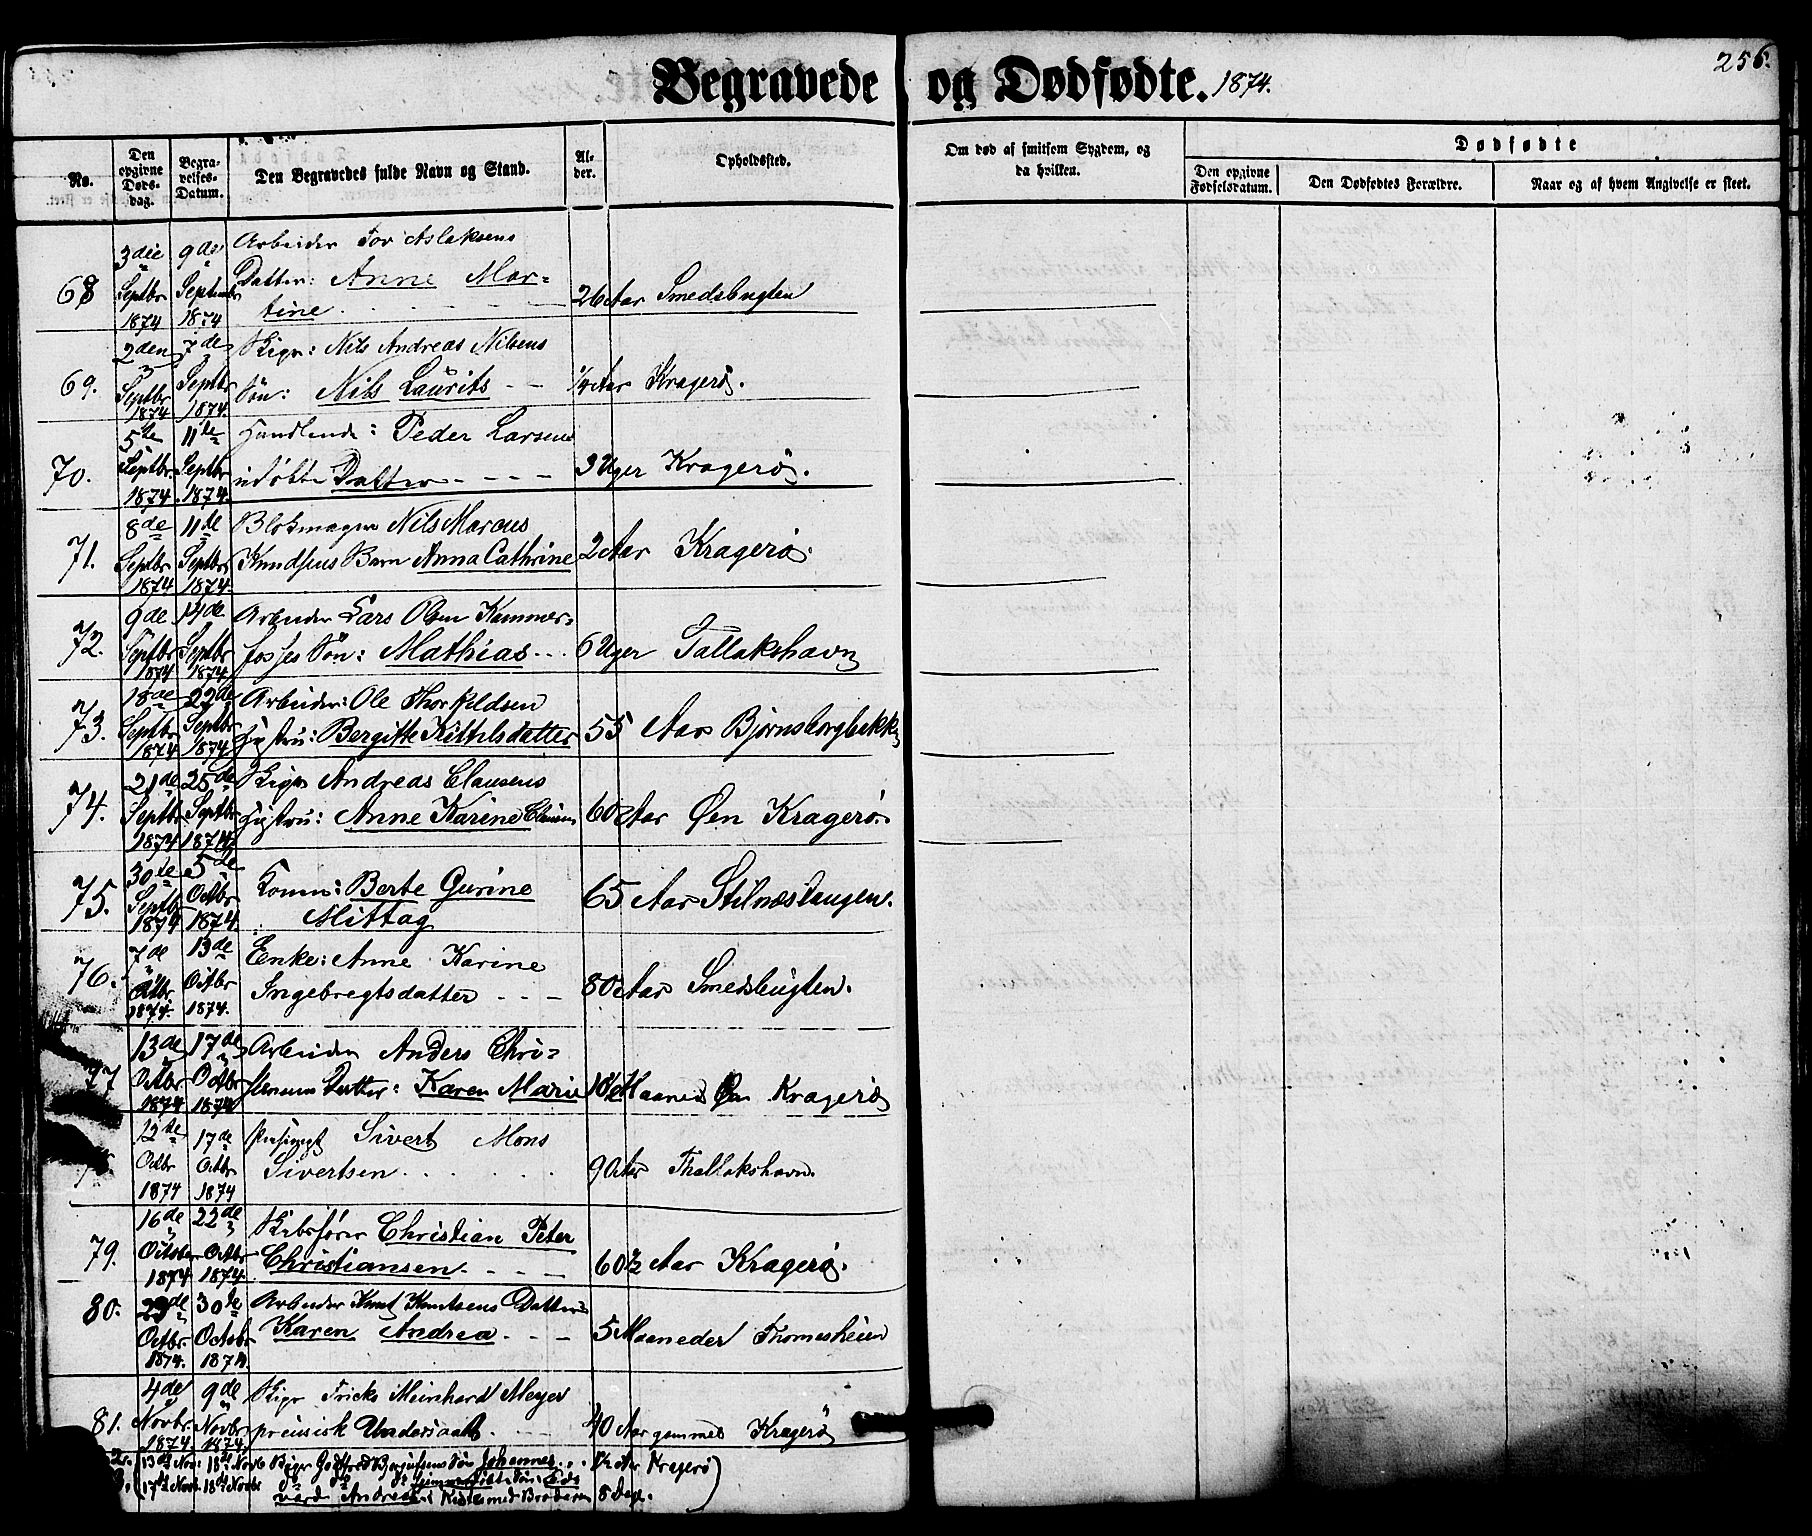 256.
Begravede og Dødfødte. 1874.
No.
Den opgivne Døds-dag.
Begra-velses-Datum.
Den Begravedes fulde Navn og Stand.
Al-der.
Opholdssted.
Om død af smitsom Sygdom, og da hvilken.
Dødfødte
Den opgivne Fødselsdatum.
Den Dødfødtes Forældre.
Naar og af hvem Angivelse er skeet.
3die 9de Arbeider Tov Aslaksens
68 Septbr September Datter: Anne Mar- 26 Aar Smedsbugten
1874 1874 tine
2den 7de Skipr: Nils Andreas Nilsens
69. Septbr Septbr Søn: Nils Laurits 1/4 Aar Kragerø.
1874 1874.
5te 11te Handlende: Peder Larsens
70. Septbr. Septbr udøbte Datter 3 Uger Kragerø.
1874 1874.
8de 11de Blokmager Nils Marcus
71. Septbr Septbr Knudsens Barn Anna Cathrine 2 Aar Kragerø.
1874 1874.
9de 14de Arbeider Lars Olsen Kammer-
72. Septbr Septbr fosses Søn: Mathias 6 Uger Tallakshavn
1874 1874
18de 22de Arbeider: Ole Thorkildsen
73. Septbr Septbr Hustru: Bergitte Kittilsdatter 55 Aar Bjørnsborgbekk
1874 1874
21de 25de Skipr Andreas Clausens
74. Septbr Septbr Hustru: Anne Karine Clausen 60 Aar Øen Kragerø.
1874 1874
30te 5de
75. Septbr Octbr Konen: Berte Gurine 65 Aar Stilnestangen.
1874 1874. Mittag
7de 13de Enke: Anne Karine
76. Octbr. Octbr Ingebregtsdatter 80 Aar Smedsbugten.
1874. 1874.
13de 17de Arbeider Anders Chri-
77 Octbr Octbr stensens Datter: Karen Marie Maaned Øen Kragerø
1874 1874
12te 17de Sivert Mons
Octbr Octbr Sivertsen 90 Aar Thallakshavn.
1874 1874
16de 22de Skibsfører Christian Peter
79. October Octbr Christiansen. 60 1/2 Aar Kragerø.
1874 1874.
80. 29de 30te Arbeider Knut Knutsens Datter
Octbr. Octobr Karen Andrea 5 Maaneder Thomesheien
1874. 1874.
4de 9de Skipr Fricke Meinhard Meyer
81. Novbr Novbr preussisk Undersaat 40 Aar gammel Kragerø
1874 1874.
13de Nov: 18de Novb Johannes 1/2 Aar Kragerø
17de Novb. 18de Novbr Søn: Ed-
vard Andreas Kiste med Broderen 8 Dage.